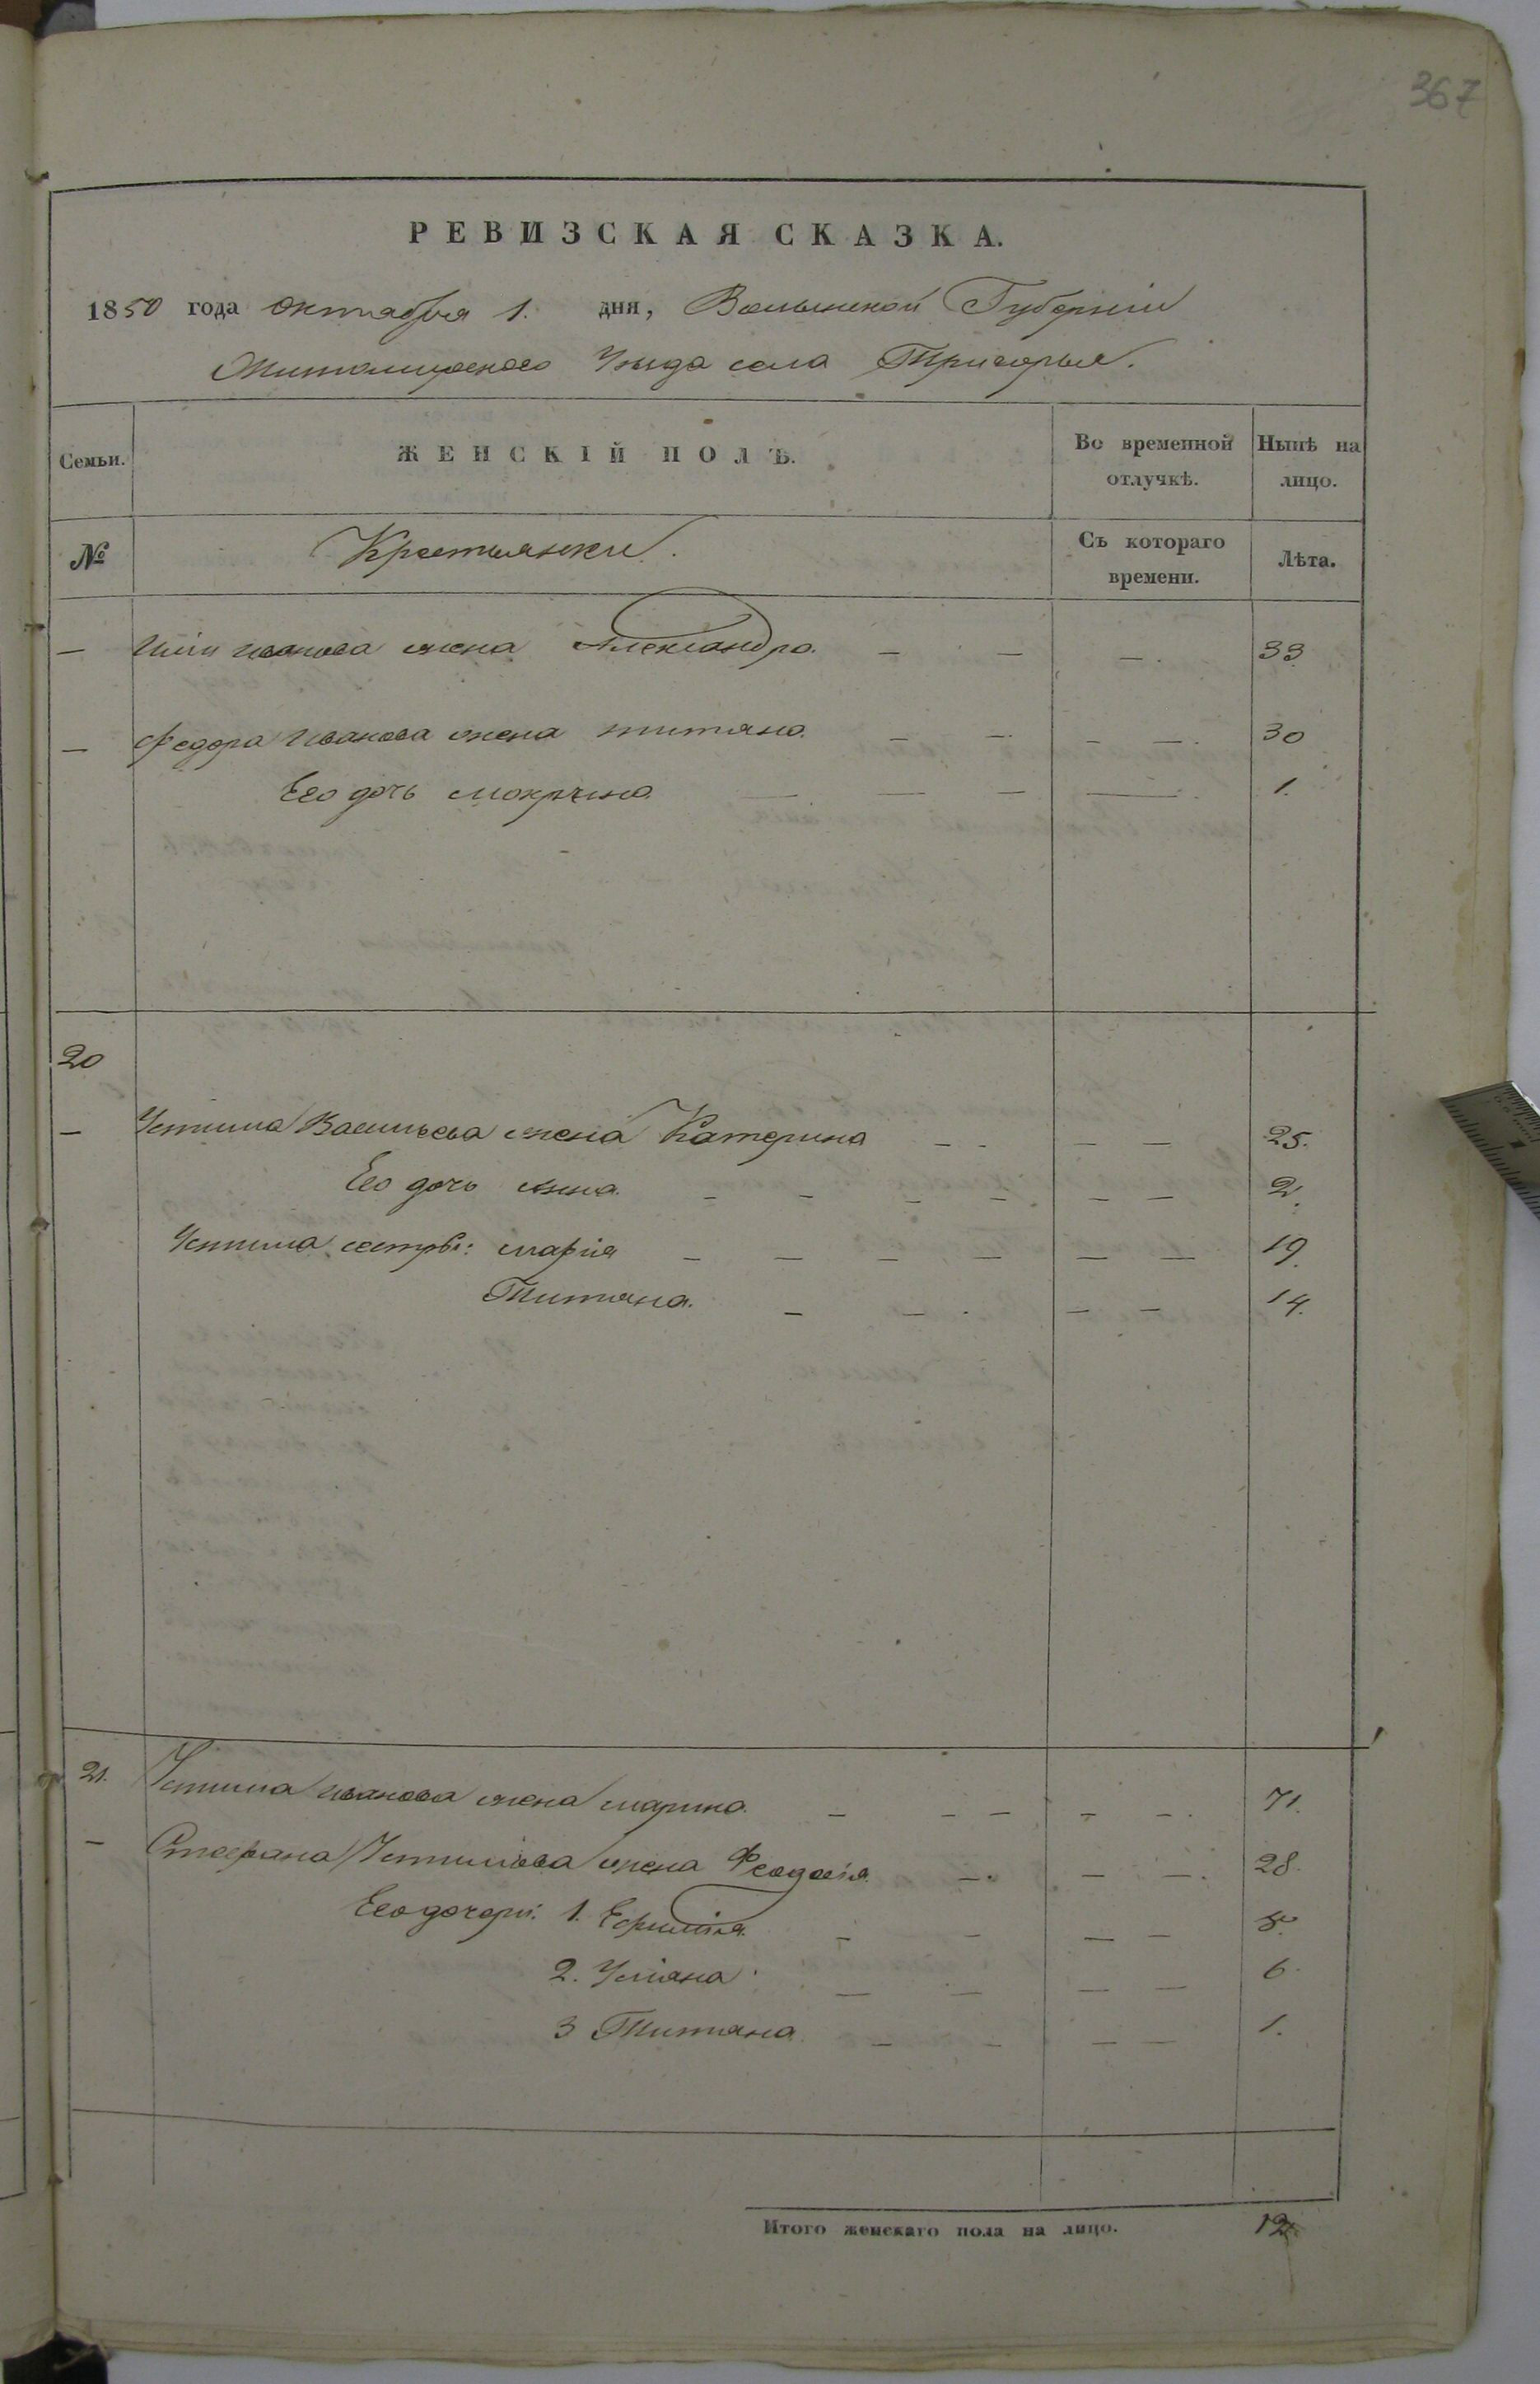 367
РЕВИЗСКАЯ СКАЗКА.
1850 года Октября 1. дня, Волынской Губерніи
Житомирского Уезда села Тригорья.
Семьи. ЖЕНСКІЙ ПОЛЪ. Во временной отлучкѣ. Нынѣ на лицо.
№ Крестьянки. Съ котораго времени. Лѣта.
— Иванова жена Александра. — — —. 33
— Федора Иванова жена Титяна. — — — —. 30
Его дочь Мокрына — — — — 1.
20
— Устима Васильева жена Катерина — — — — 25.
Его дочь Анна. — — — — — — 2.
Устима сестры: Марія — — — — — — 19.
Титяна. — — — — 14.
21. Устима Иванова жена Марина. — — — — —. 71.
— Стефана Устимова жена Феодосія. —. — —. 28.
Его дочери: 1. Ефимія. — — — — 8.
2. Уліяна — — — — 6.
3 Титяна — — — — 1.
Итого женскаго пола на лицо. 12